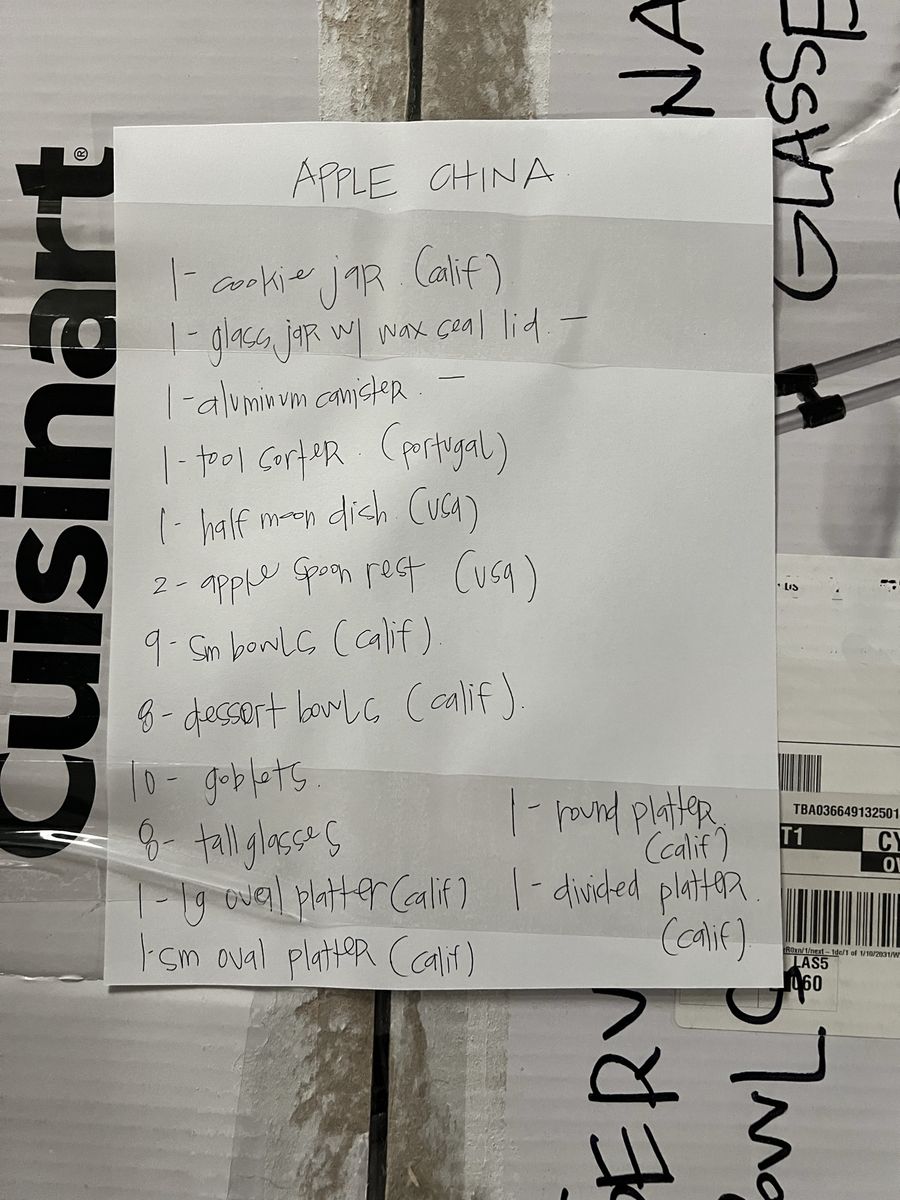 APPLE CHINA
1- cookie jar. (calif)
1- glass jar w/ wax seal lid. -
1- aluminum canister. -
1- tool sorter. (portugal)
1- half moon dish. (usa)
2- apple spoon rest (usa)
9- sm bowls (calif).
8- dessert bowls (calif).
10- goblets.
8- tall glasses
1- lg oval platter (calif)
1- sm oval platter (calif)
1- round platter.
(calif)
1- divided platter.
(calif).
Cuisinart®
NA
GLASSE
TBA036649132501
T1
CY
LAS5
ERV
BOWLS